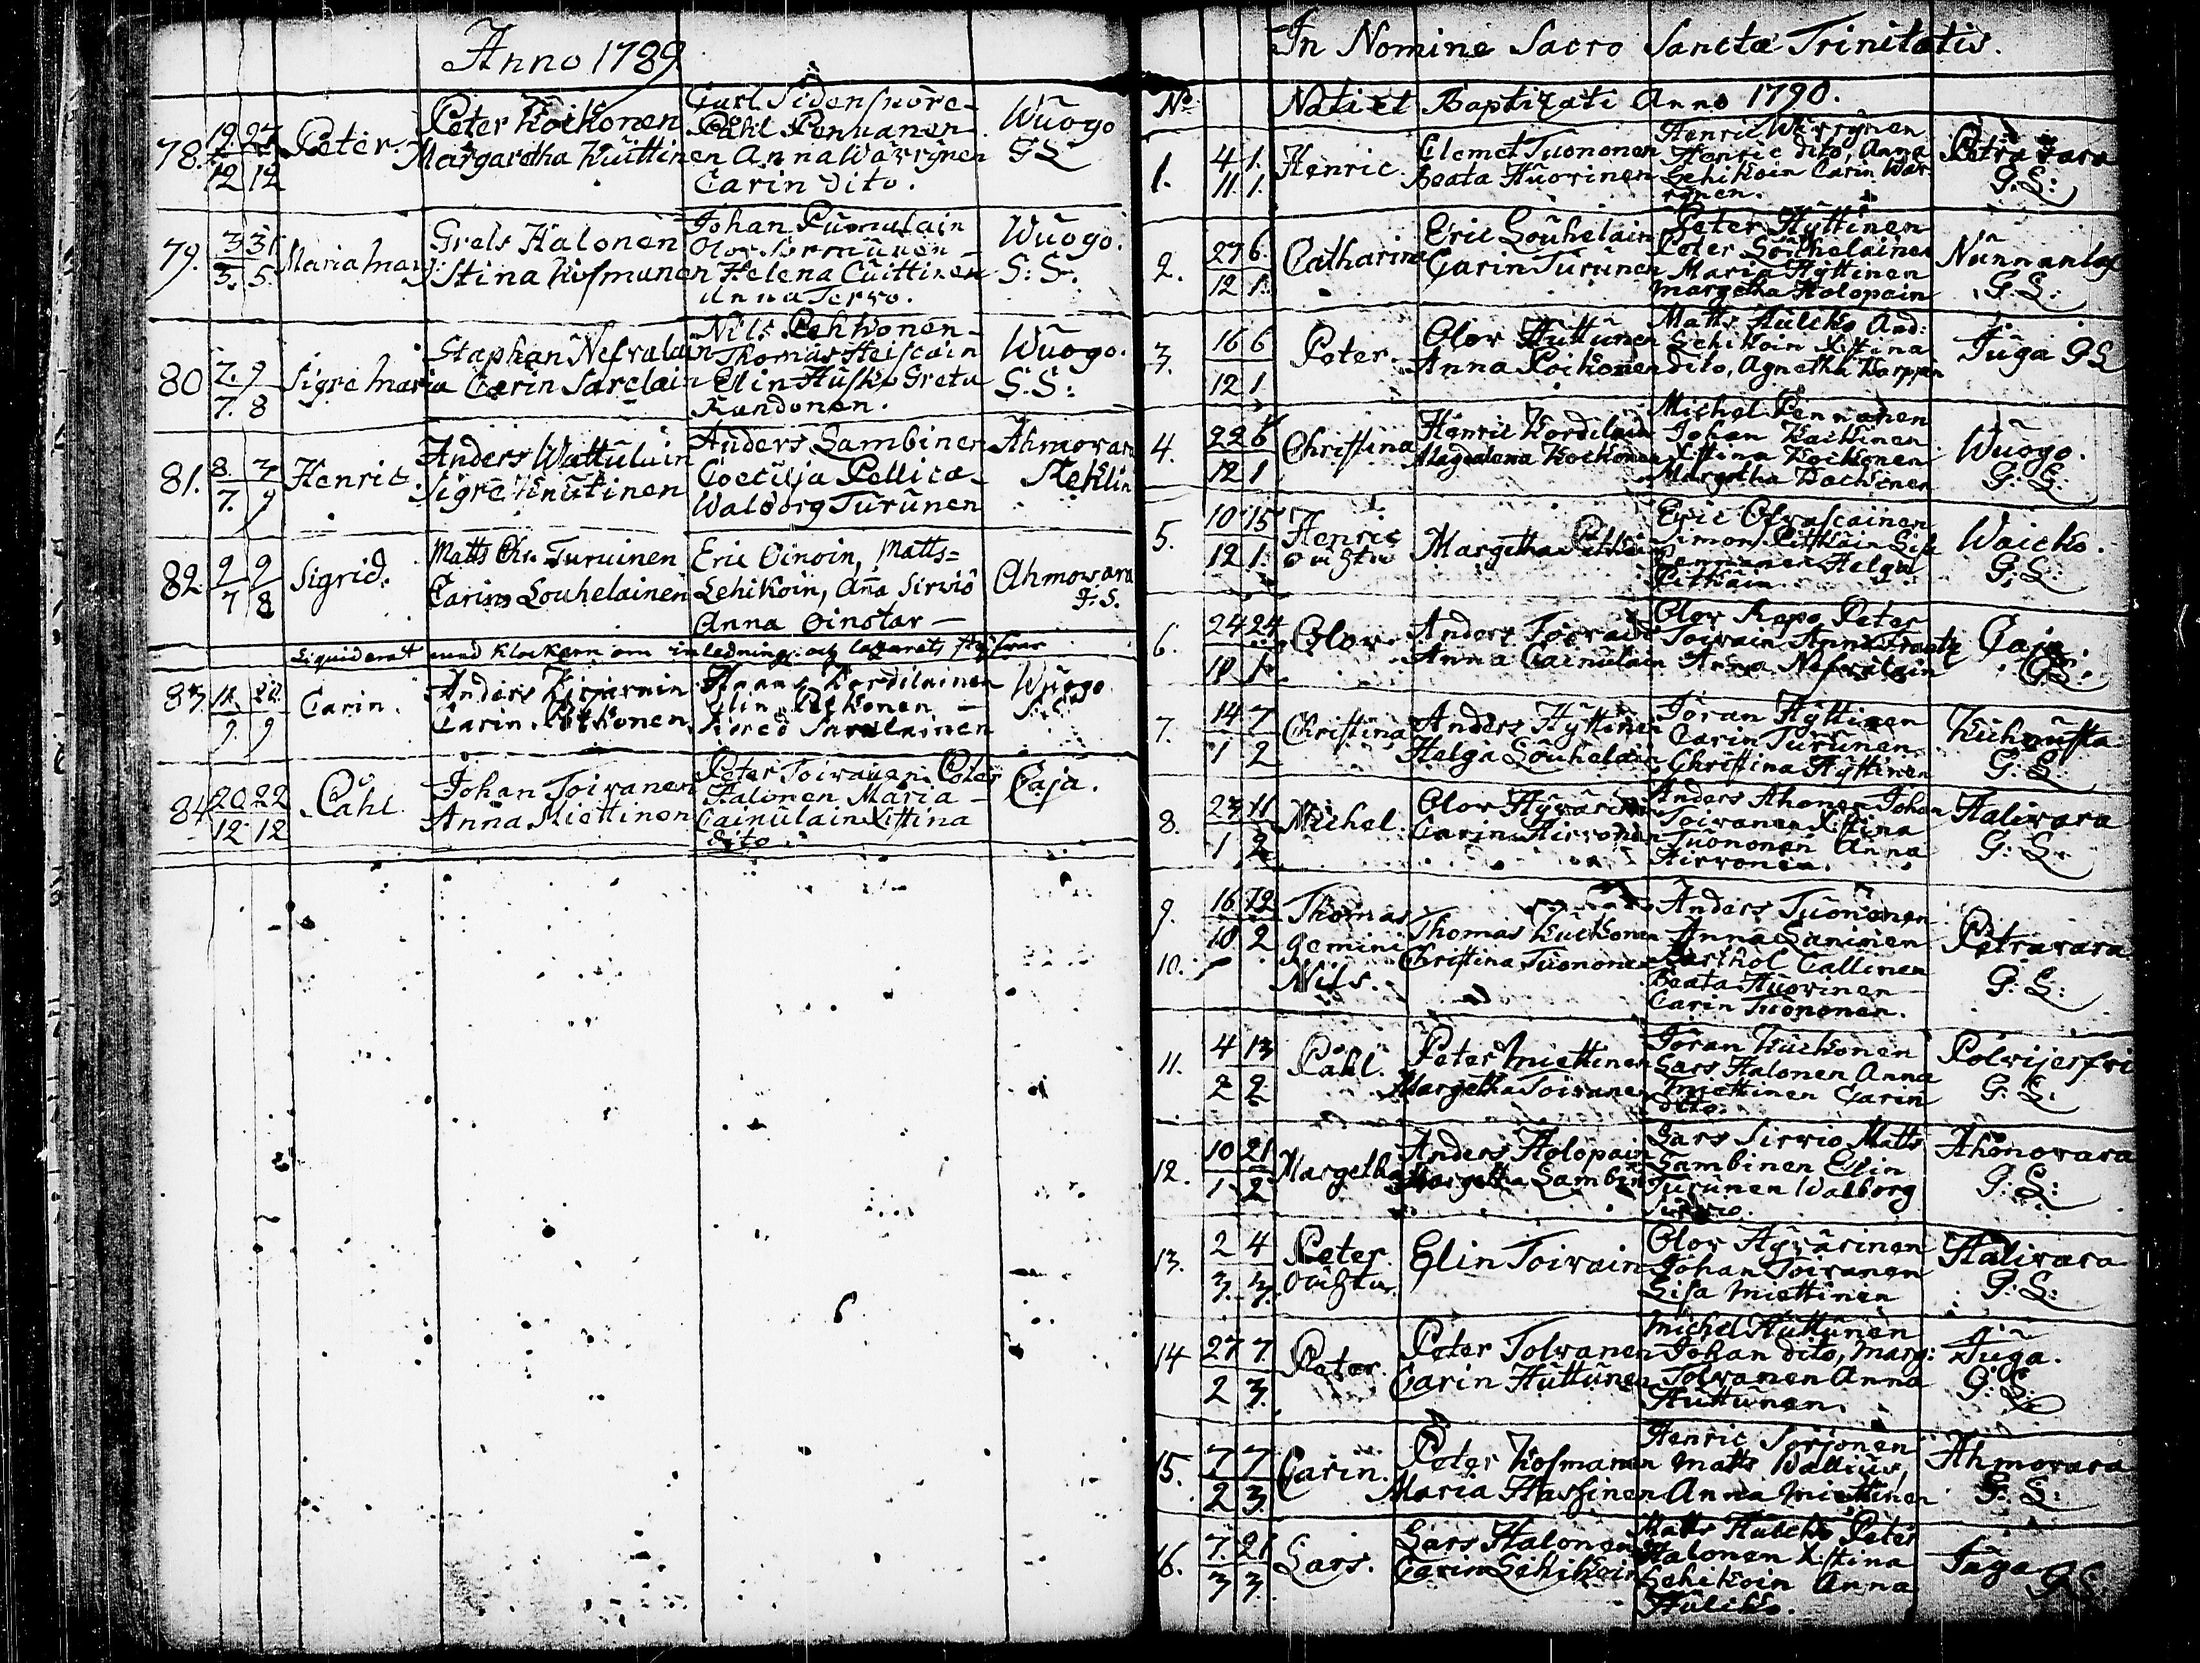 Anno 1789.
78. 19/12 27/12 Peter. Peter Koikonen Carl Sidensnöre- Wuogo
Margaretha Kuittinen Påhl Pennanen G L
Anna Wäyrynen
Carin dito.
79. 3/5. 31/5. Maria Marg: Grels Halonen Johan Pumulain Wuogo.
Stina Kosmunen Olov Sormunen S: S.
Helena Cuittinen
Anna Terwo.
80 2./7. 9/8 Sigre Maria Staphan Nefvalain Nils Pehkonen Wuogo.
Carin Sarelain Thomas Heiscain S.S:
Elin Husko Greta
Randonen.
81. 8./7. 3/9 Henric. Anders Wattulain Anders Lambinen Ahmovara
Sigre Knutinen Coecilja Pellica Steklin
Walborg Turunen
82. 9/7 9/8 Sigrid. Matts Chr. Turuinen Eric Oinoin, Matts= Ahmovara
Carin Louhelainen Lehikoin, Anna Sirviö F. S.
Anna Oinotar —
Liquiderat med Klockaren om inledning och
83. 12/9. 22/9 Carin. Anders Kordilainen Wuogo
Carin Pehkonen Elin Pehkonen S. S.
Sigred Sarelainen
84 20/12 22/12 Påhl Johan Toivanen Peter Toivanen Peter Caja.
Anna Miettinen Halonen Maria
Cainulain Xstina
dito.
In Nomine Sacro Sanctæ Trinitatis.
No Nati et Baptizati Anno 1790.
1. 4/11. 1./1. Henric. Clemet Tuononen Henric Wäyrynen Petravara
Beata Huovinen Henric dito, Anna G. L:
Lehikoin Carin Wäy-
rynen.
2. 27/12 6./1. Catharina Eric Louhelain Peter Hyttinen Nunnanlax
Carin Turunen Peter Louhelainen G. L:
Maria Hyttinen
Margetha Holopain
3. 16/12 6/1 Peter. Olov Huttunen Matts Hulcko And: Juga G L
Anna Poikonen Lehikoin Xstina
dito, Agnetha Karppin
4. 22/12 6/1 Christina Henric Kordilain Michel Pennanen Wuogo.
Magdalena Kockonen Johan Kackinen G: L:
Xstina Kockonen
Margetha Kackinen
5. 10/12 15/1. Henric Margetha Pitkäin Eric Ofvascainen Waicko.
oächta Simon Pitkäin Lisa G: L:
Pennanen Helga
Pitkäin
6. 24/12 24/1. Olov Anders Toivain Olov Repo Peter Caja.
Anna Cainulain Toivain Anna G L:
Anna Nefvalain
7. 14/1 7/2 Christina Anders Hyttinen Jöran Hyttinen Kuhnusta
Helga Louhelain Carin Turunen G: L:
Christina Hyttinen
8. 23/1 11/2 Michel. Olov Hyvärinen Anders Ahonen Johan Halivara
Carin Hirvonen Toivanen Xstina G: L:
Tuononen Anna
Hirvonen.
9. 16/10 12/2 Thomas Thomas Kuckonen Anders Tuononen Petravara
10. gemini Christina Tuononen Anna Laninen G: L:
Nils. Barthol Callinen
Beata Huovinen
Carin Tuononen.
11. 4/2 13/2 Påhl. Peter Miettinen Jöran Kuckonen Polvijerfvi
Margetha Toivanen Lars Halonen Anna G: L:
Miettinen Carin
dito.
12. 10/1 21/2 Margetha Anders Holopain Lars Sirviö Matts Ahonovara
Margetha Lambin Lambinen Elin G: L:
Turunen Walborg
Sirviö.
13. 2/3. 4/3. Peter Elin Toivain Olov Hyvärinen Halivara
oächta Johan Toivanen G: L:
Lisa Miettinen
14 27/2 7./3. Peter. Peter Tolvanen Michel Huttunen Juga.
Carin Huttunen Johan dito, Marg: G: L:
Tolvanen Anna
Huttunen.
15. 7/2 7/3. Carin. Peter Kosmanen Henric Sorjonen Ahmovara
Maria Hassinen Matts Wallius, G: L:
Anna Miettinen
16. 7./3 21/3. Lars. Lars Halonen Matts Hulcko Peter Juga G L
Carin Lehikoin Halonen Xstina
Lehikoin Anna
Hulcko.